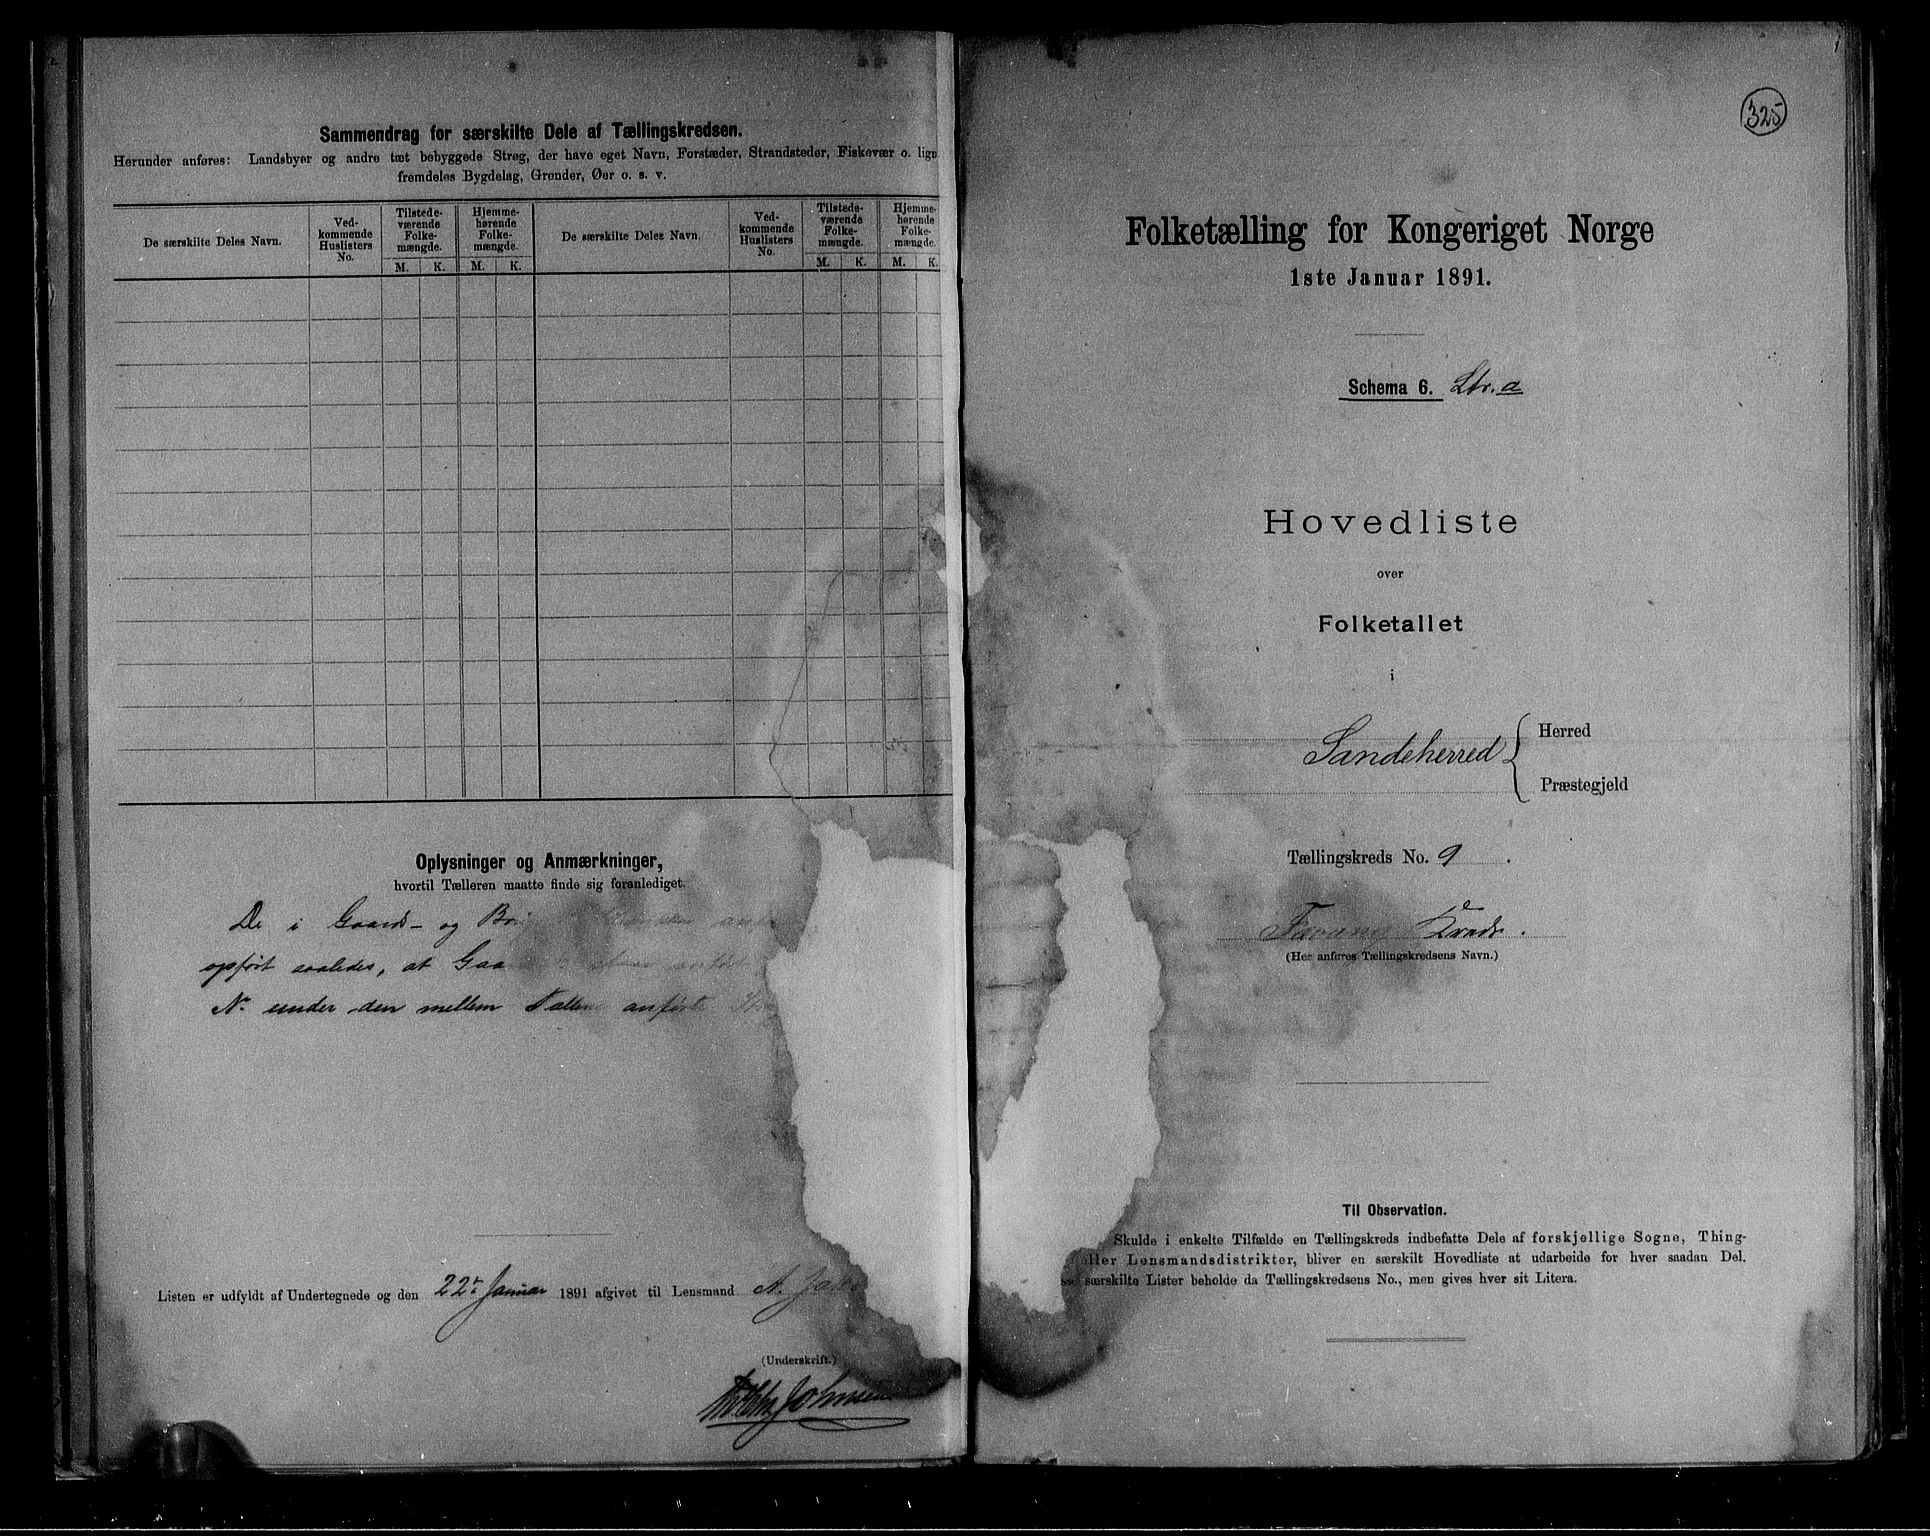 Sammendrag for særskilte Dele af Tællingskredsen.
Herunder anføres: Landsbyer og andre tæt bebyggede Strøg, der have eget Navn, Forstæder, Strandsteder, Fiskevær o. lign
fremdeles Bygdelag, Grender, Øer o. s. v.
De særskilte Deles Navn.
Ved-
kommende
Huslisters
No.
Tilstede-
værende
Folke-
mængde.
M. K.
Hjemme-
hørende
Folke-
mængde.
M. K.
De særskilte Deles Navn.
Ved-
kommende
Huslisters
No.
Tilstede-
værende
Folke-
mængde.
M. K.
Hjemme-
hørende
Folke-
mængde.
M. K.
Oplysninger og Anmærkninger,
hvortil Tælleren maatte finde sig foranlediget.
De i Gaards- og
opført saaledes, at
No under den mellem anførte
Listen er udfyldt af Undertegnede og den 22de Januar 1891 afgivet til Lensmand A.
(Underskrift.)
Johnsen
325
Folketælling for Kongeriget Norge
1ste Januar 1891.
Schema 6. Ltr. a
Hovedliste
over
Folketallet
i
Sandeherred { Herred
Præstegjeld
Tællingskreds No. 9.
Kreds.
(Her anføres Tællingskredsens Navn.)
Til Observation.
Skulde i enkelte Tilfælde en Tællingskreds indbefatte Dele af forskjellige Sogne, Thing-
eller Lensmandsdistrikter, bliver en særskilt Hovedliste at udarbeide for hver saadan Del.
særskilte Lister beholde da Tællingskredsens No., men gives hver sit Litera.